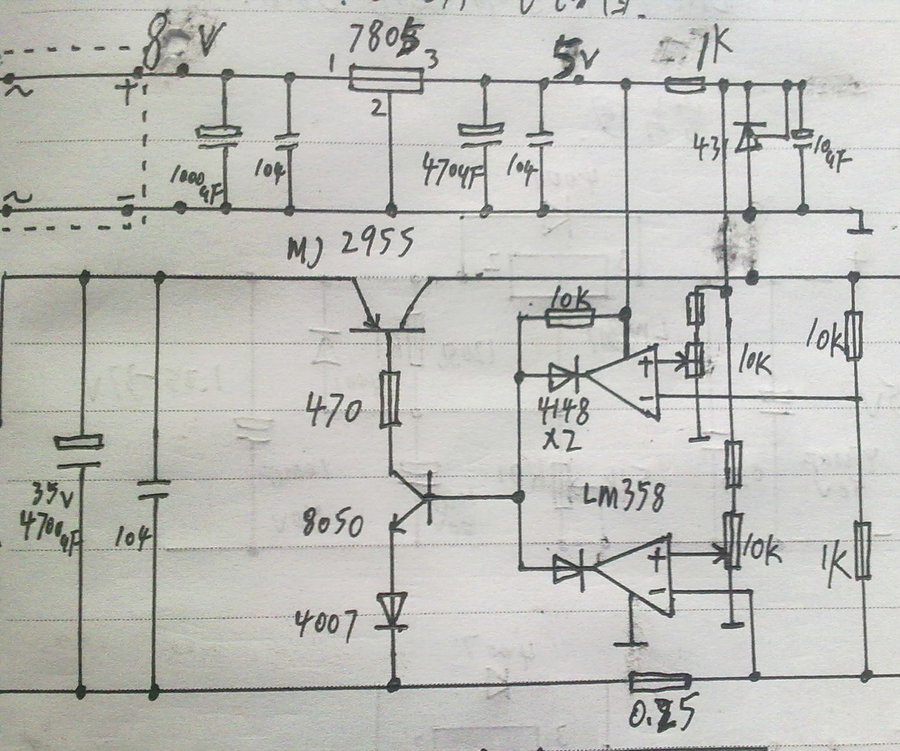 8 V
7805
1
3
2
5V
1K
+
~
~
-
1000uF
104
470uF
104
431
10uF
MJ 2955
10K
+
-
10K
10K
470
4148
x2
35V
4700uF
104
8050
LM358
+
-
10K
1K
4007
0.25